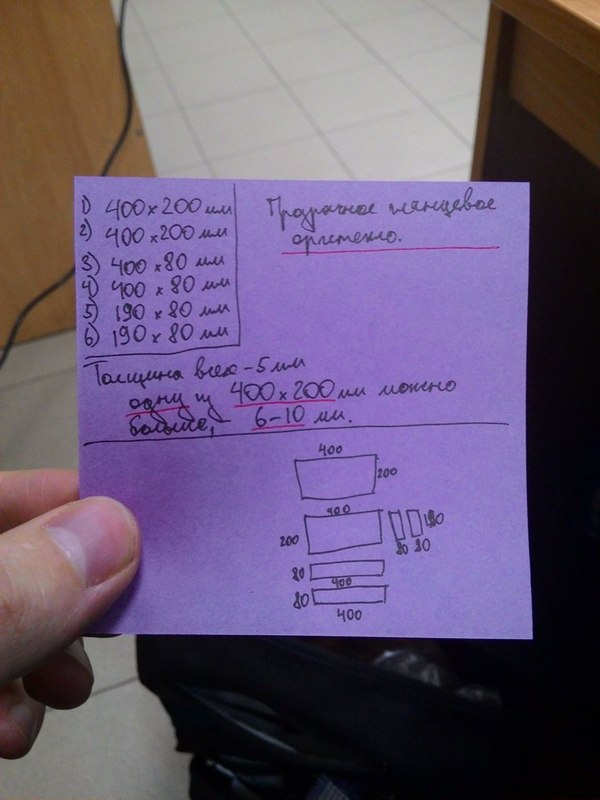 1) 400 x 200 мм
2) 400 x 200 мм
3) 400 x 80 мм
4) 400 x 80 мм
5) 190 x 80 мм
6) 190 x 80 мм
Прозрачное глянцевое
оргстекло.
Толщина всех - 5 мм
одну из 400 x 200 мм можно
больше, 6-10 мм.
400
200
400
200
80
80
190
80
400
80
400